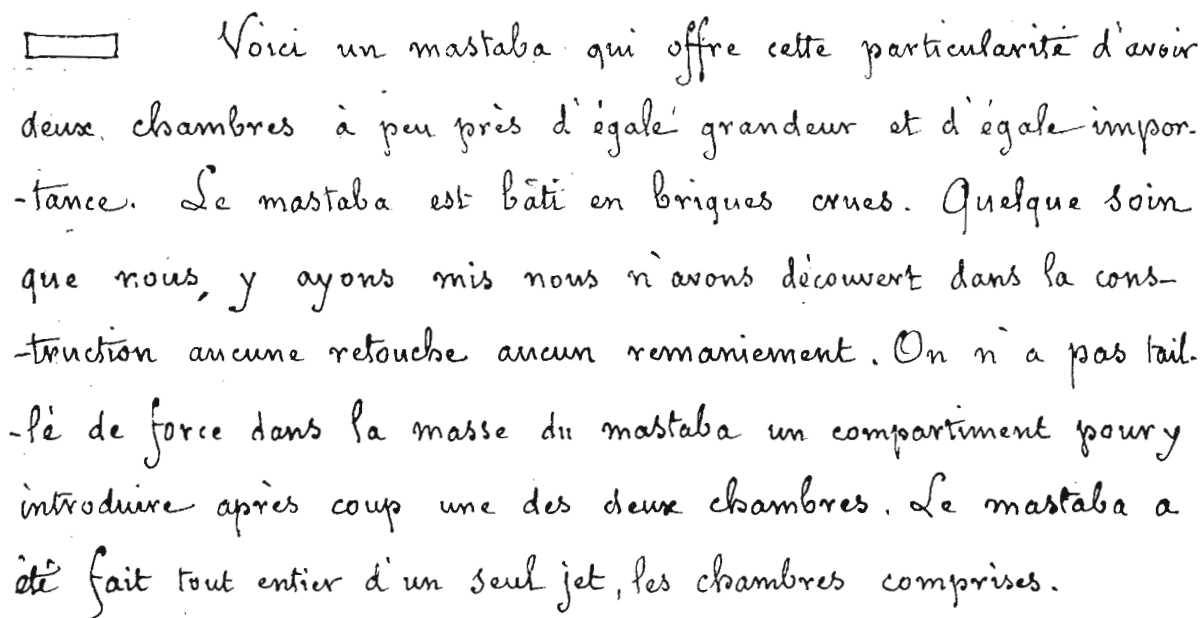 Voici un mastaba qui offre cette particularité d'avoir
deux chambres à peu près d'égale grandeur et d'égale impor-
-tance. Le mastaba est bâti en briques crues. Quelque soin
que nous, y ayons mis nous n'avons découvert dans la cons-
-truction aucune retouche aucun remaniement. On n'a pas tail-
-lé de force dans la masse du mastaba un compartiment pour y
introduire après coup une des deux chambres. Le mastaba a
été fait tout entier d'un seul jet, les chambres comprises.